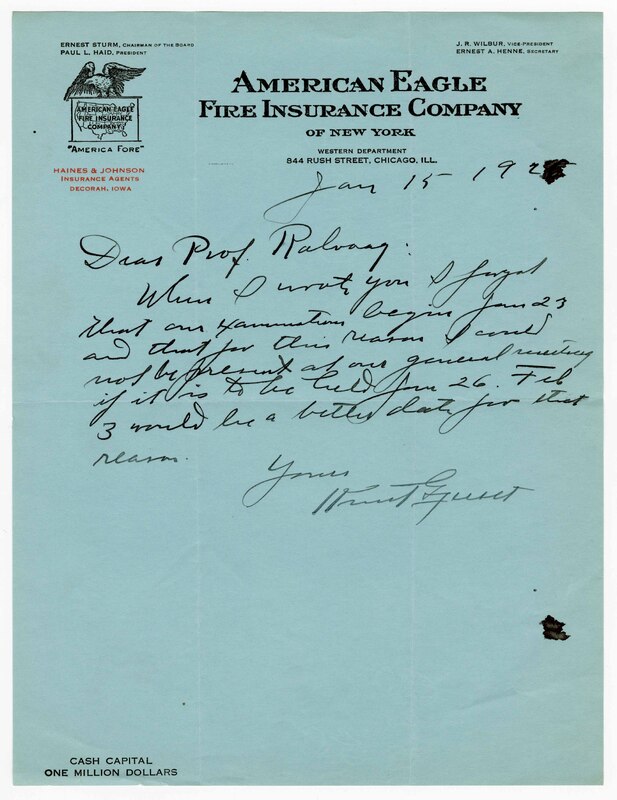 ERNEST STURM, CHAIRMAN OF THE BOARD
PAUL L. HAID, PRESIDENT
J. R. WILBUR, VICE-PRESIDENT
ERNEST A. HENNE, SECRETARY
AMERICAN EAGLE
FIRE INSURANCE
COMPANY
"AMERICA FORE"
AMERICAN EAGLE
FIRE INSURANCE COMPANY
OF NEW YORK
WESTERN DEPARTMENT
844 RUSH STREET, CHICAGO, ILL.
HAINES & JOHNSON
INSURANCE AGENTS
DECORAH, IOWA
Jan 15 192
Dear Prof. Rolvaag:
When I wrote you I forgot
that our examinations begin Jan 23
and that for this reason I could
not be present at our general meeting
if it is to be held Jan 26. Feb
3 would be a better date for that
reason.
Yours
CASH CAPITAL
ONE MILLION DOLLARS